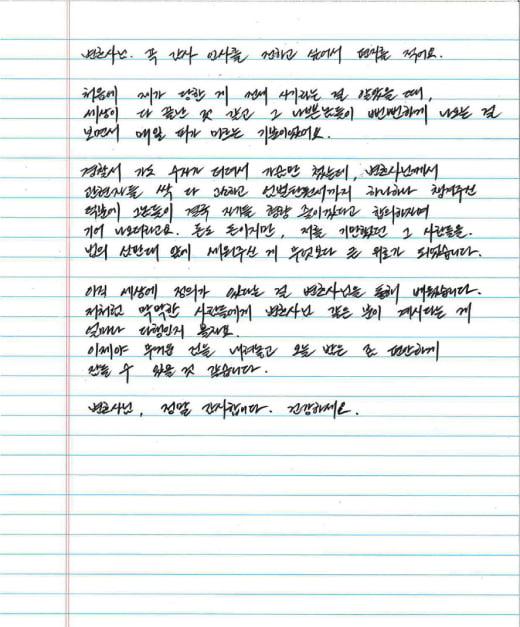 변호사님. 꼭 감사 인사를 전하고 싶어서 편지를 적어요.
처음에 제가 당한 게 전세 사기라는 걸 알았을 때,
세상이 다 끝난 것 같고 그 나쁜놈들이 뻔뻔하게 나오는 걸
보면서 매일 피가 마르는 기분이었어요.
경찰서 가도 수사가 더뎌서 가슴만 쳤는데, 변호사님께서
관련자를 싹 다 고소하고 선별탄원서까지 하나하나 챙겨주신
덕분에 그놈들이 결국 자기들 형량 줄이겠다고 합의하자며
기어 나오더라고요. 돈도 돈이지만, 저를 기만했던 그 사람들을
법의 심판대 앞에 세워주신 게 무엇보다 큰 위로가 되었습니다.
아직 세상에 정의가 있다는 걸 변호사님을 통해 배웠습니다.
저처럼 막막한 사람들에게 변호사님 같은 분이 계시다는 게
얼마나 다행인지 몰라요.
이제야 무거운 짐을 내려놓고 오늘 밤은 좀 편안하게
잠들 수 있을 것 같습니다.
변호사님, 정말 감사합니다. 건강하세요.